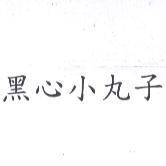 黑心小丸子